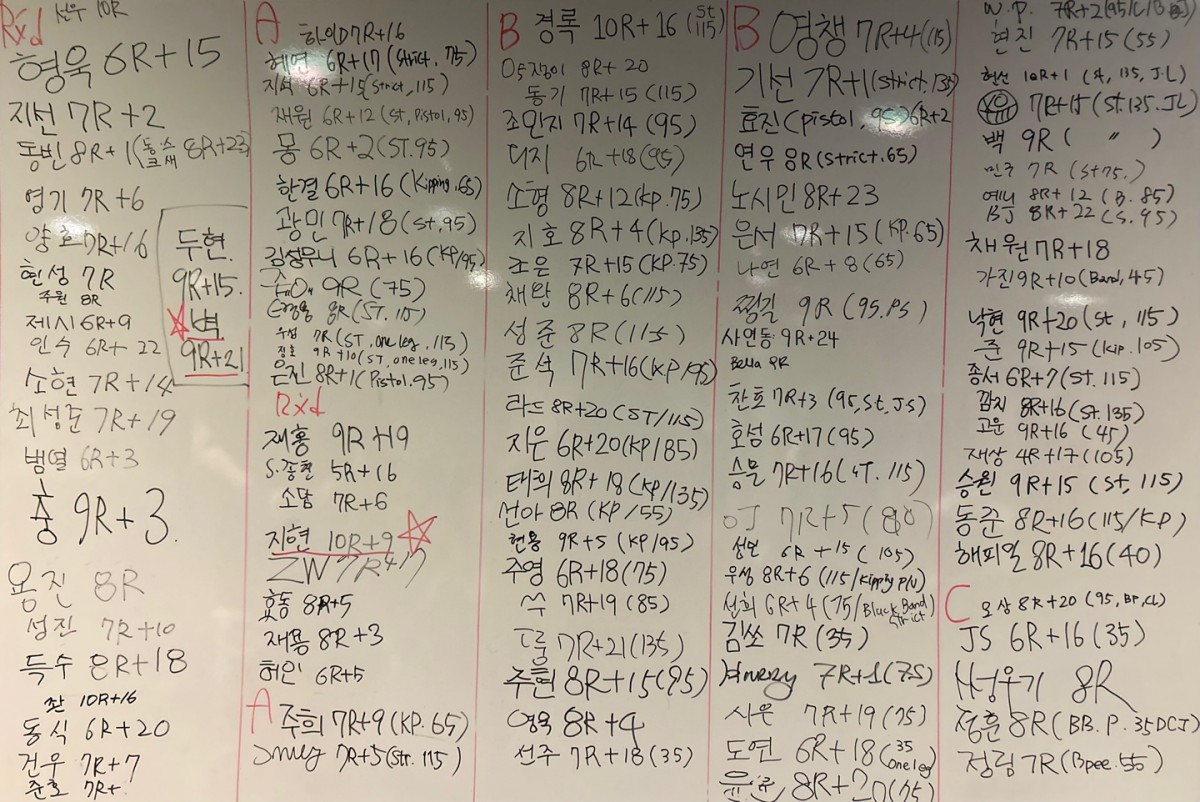 Rxd 선우 10R
형욱 6R+15
지선 7R+2
동빈 8R+1 (동수 글새 8R+23)
영기 7R+6
양호 7R+16
현성 7R
주원 8R
제시 6R+9
인수 6R+22
소현 7R+14
최성준 7R+19
범열 6R+3
충 9R+3.
용진 8R
성진 7R+10
득수 8R+18
좌 10R+16
동식 6R+20
건우 7R+7
준호 7R+
두현.
9R+15.
벽
9R+21
A
하이D 7R+16
혜연 6R+17 (Strict. 75)
지석 6R+15 (Strict, 115)
재원 6R+12 (St, Pistol, 95)
몽 6R+2 (ST. 95)
한결 6R+16 (Kipping. 65)
광민 7R+18 (St. 95)
김성무니 6R+16 (KP/95)
9R (75)
8R (ST. 105)
우성 7R (ST. one leg. 115)
정호 9R+10 (ST. one leg, 115)
은진 8R+1 (Pistol. 95)
Rxd
재홍 9R+19
S.종철 5R+16
소담 7R+6
지현 10R+9
ZW 7R+17
효동 8R+5
재용 8R+3
허인 6R+5
A 주희 7R+9 (KP. 65)
7R+5 (Str. 115)
B 경록 10R+16 (St 115)
오징어 8R+20
동기 7R+15 (115)
조민지 7R+14 (95)
디지 6R+18 (95)
소형 8R+12 (KP. 75)
지호 8R+4 (KP. 135)
조은 7R+15 (KP. 75)
채왕 8R+6 (115)
성준 8R (115)
준석 7R+16 (KP/95)
라드 8R+20 (ST/115)
지운 6R+20 (KP/85)
태희 8R+18 (KP/135)
선아 8R (KP/55)
현용 9R+5 (KP/95)
주영 6R+18 (75)
쓱 7R+19 (85)
드룽 7R+21 (135)
주현 8R+15 (95)
영욱 8R+4
선주 7R+18 (35)
B 영챙 7R+4 (115)
기선 7R+1 (Strict. 135)
효진 (Pistol, 95) 6R+2
연우 8R (Strict. 65)
노시민 8R+23
은서 7R+15 (KP. 65)
나연 6R+8 (65)
찡길 9R (95. PS)
사연동 9R+24
Bella 9R
찬호 7R+3 (95, St, JS)
호섬 6R+17 (95)
승문 7R+16 (ST. 115)
OJ 7R+5 (80)
성민 6R+15 (105)
우성 8R+6 (115/Kipping P/U)
선희 6R+4 (75/Black Band Strict)
김쏘 7R (35)
7R+1 (75)
시은 7R+19 (75)
도연 6R+18 (35 one leg)
윤 8R+20 (75)
N.P. 7R+2 (95/C/B
현진 7R+15 (55)
현선 10R+1 (St, 135, J.L)
7R+15 (St. 135. JL)
백 9R ( " )
민주 7R (St 75.)
예니 8R+12 (B. 85)
BJ 8R+22 (S. 95)
채원 7R+18
가진 9R+10 (Band, 45)
낙현 9R+20 (St, 115)
준 9R+15 (Kip. 105)
종서 6R+7 (ST. 115)
깜지 8R+16 (St. 135)
고운 9R+16 (45)
재상 4R+17 (105)
승원 9R+15 (St, 115)
동준 8R+16 (115/KP)
해피일 8R+16 (40)
C 오상 8R+20 (95, BP, CL)
JS 6R+16 (35)
서영우기 8R
정훈 8R (BB. P. 35 DCJ)
정림 7R (Bpee. 55)